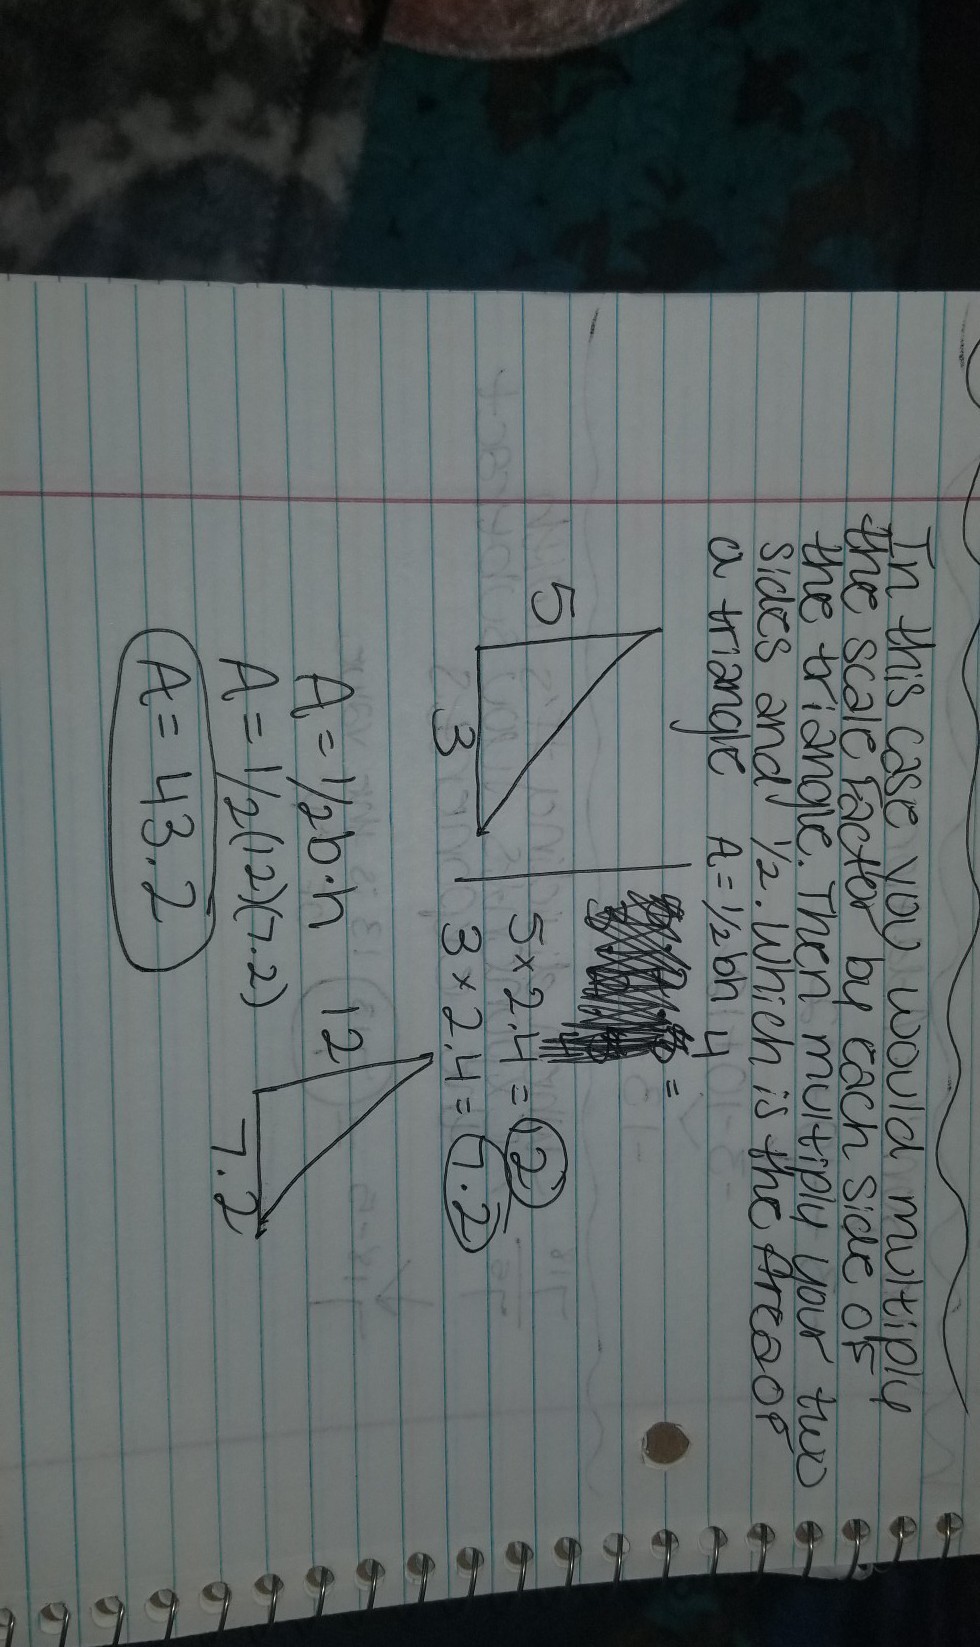 In this case you would multiply
the scale factor by each side of
the triangle. Then multiply your two
sides and 1/2. Which is the Area of
a triangle A = 1/2 bh
=
5
3
5 × 2.4 = 12
3 × 2.4 = 7.2
A = 1/2 b · h
12
7.2
A = 1/2 (12)(7.2)
A = 43.2